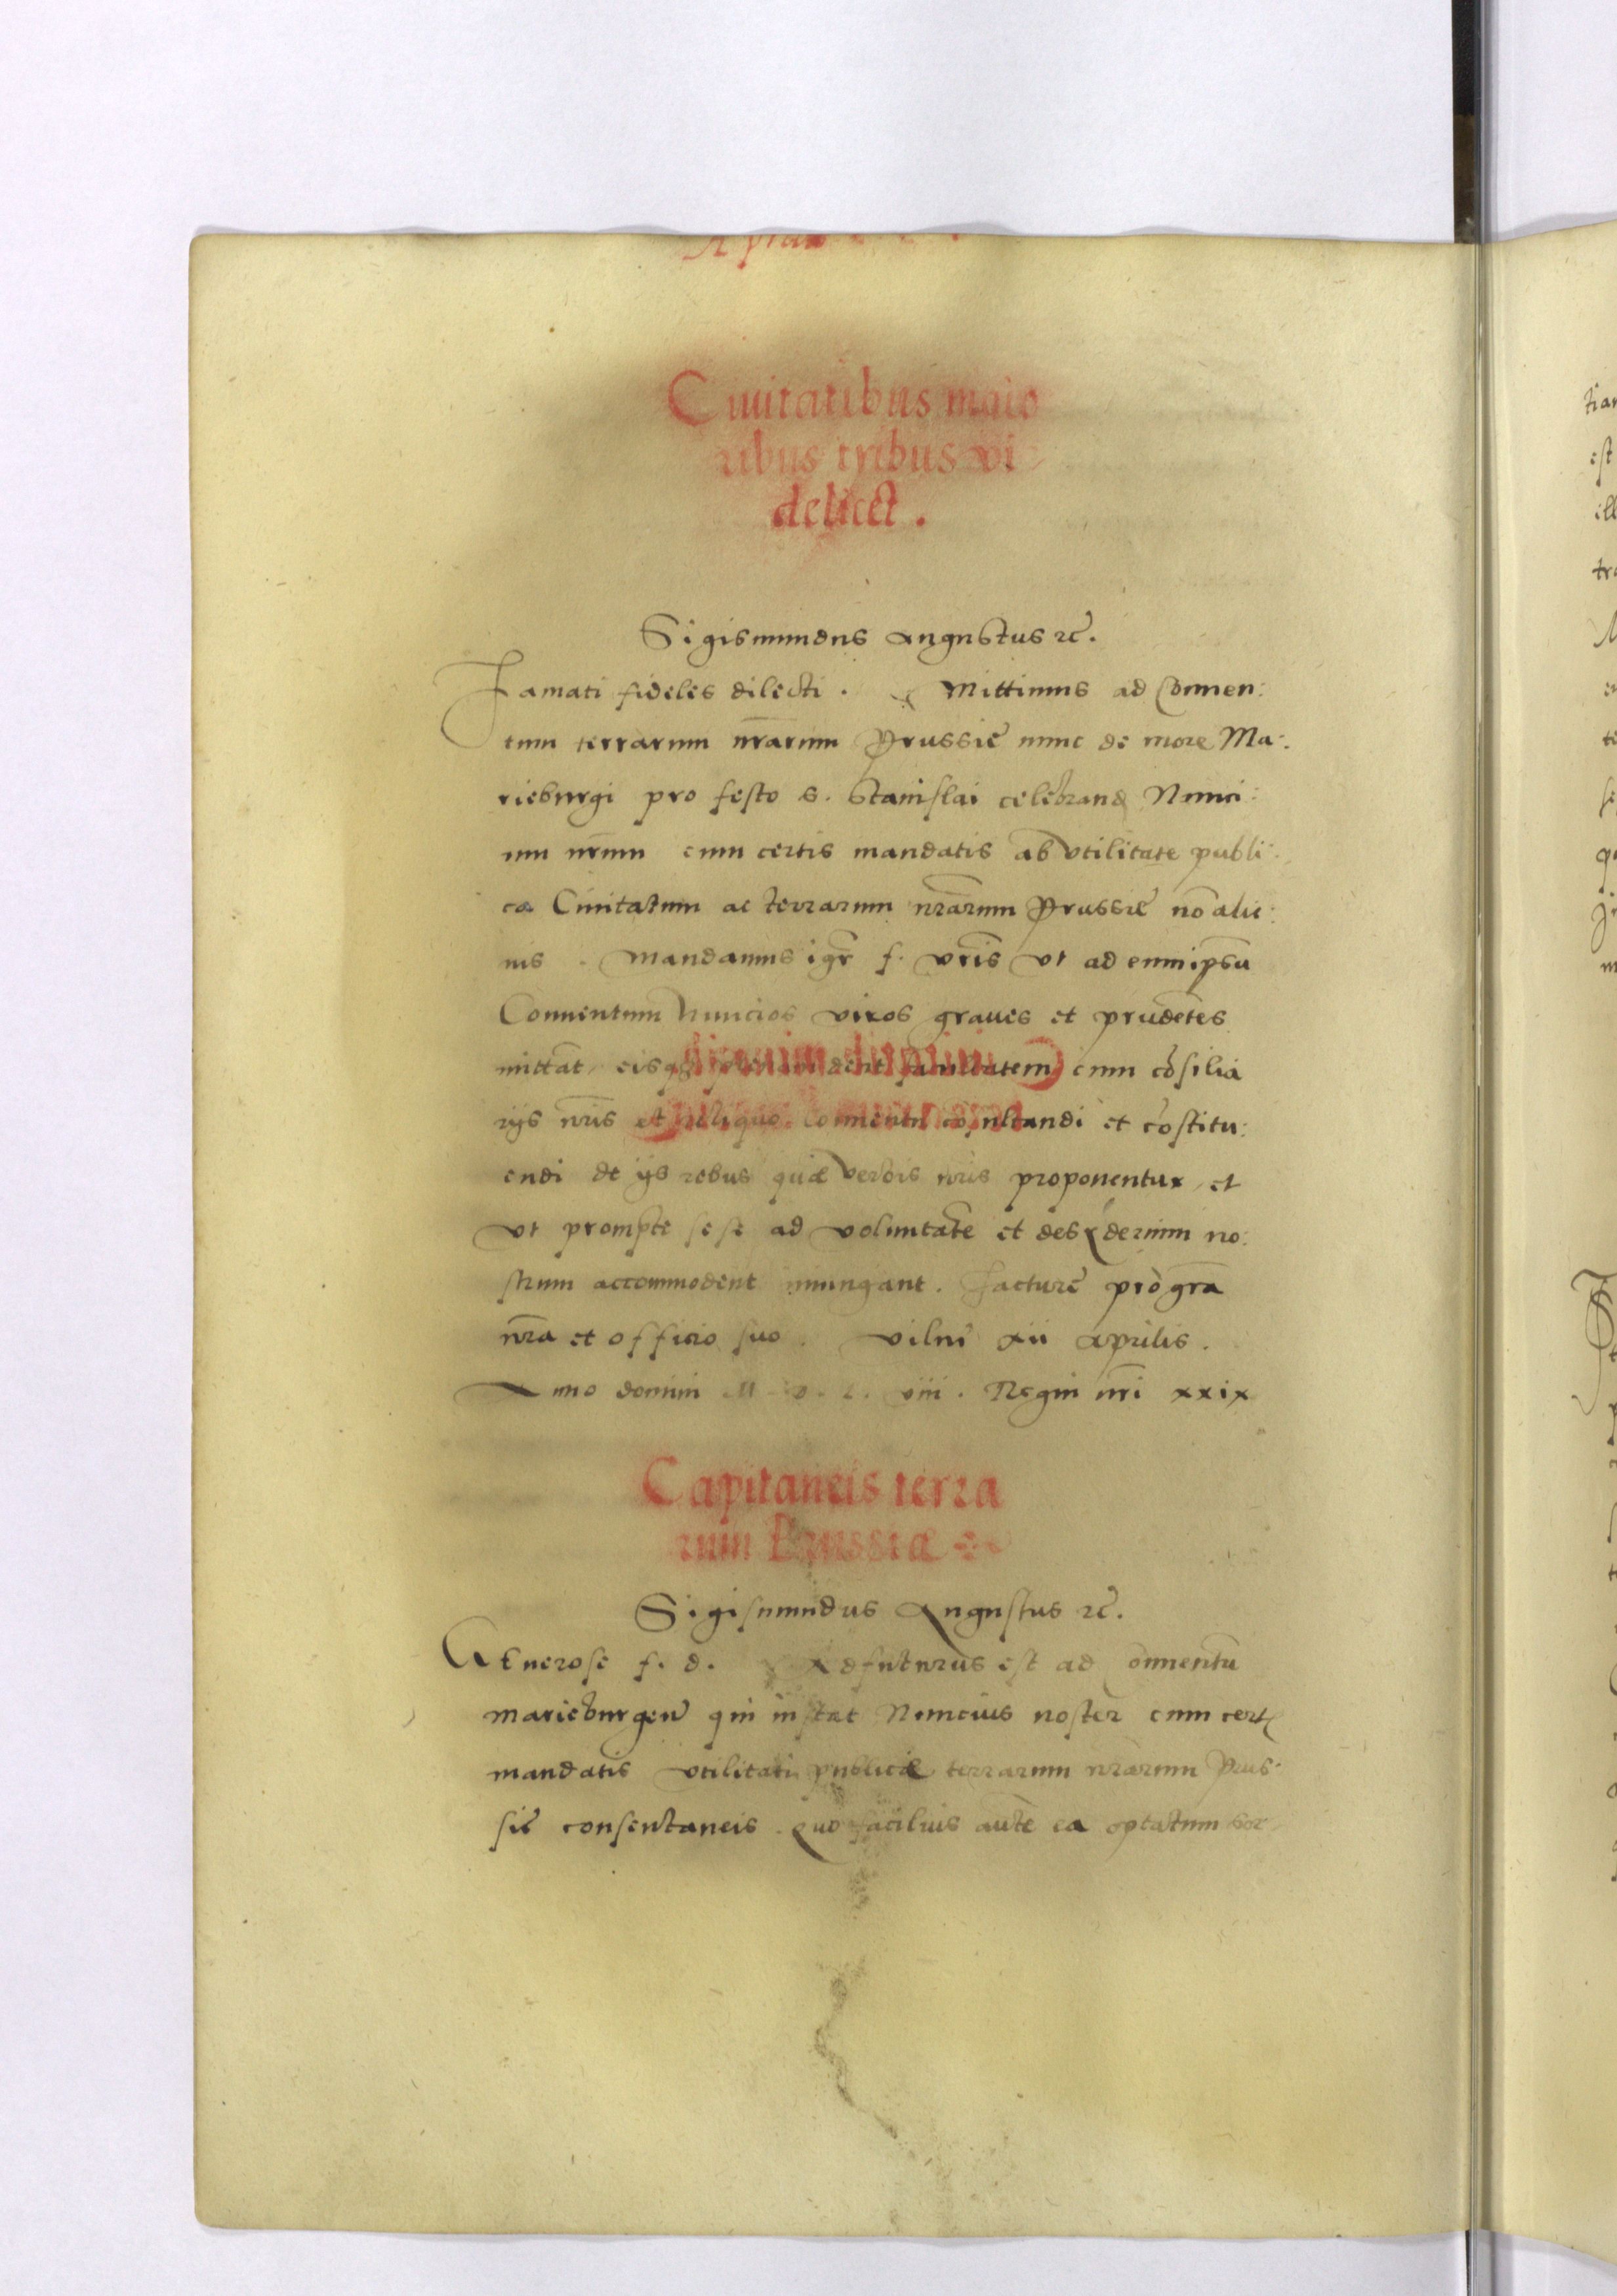 Ciuitatibus maio
ribus tribus vi
delicet .
Sigismundus Augustus rc̃.
Famati fideles dilecti . Mittimus ad Conuen:
tum terrarum nr̃arum Prussie nunc de more Ma:
rieburgi pro festo S. Stanislai celebrand Nunci:
um nr̃um cum certis mandatis ab vtilitate publi:
ca Ciuitatum ac terrarum nr̃arum Prussie nō alie:
nis . Mandamus igr̃ f. vr̃is vt ad eum ipsū
Conuentum Nuncios viros graues et prudētes
mittāt eisq dent facultatem cum cōsilia
rijs nr̃is et reliquo Conuentu cōsultandi et cōstitu:
endi de ijs rebus quæ verbis nr̃is proponentur et
vt prompte sese ad voluntatē et desyderium no:
strum accommodent iniungant . Facture pro gr̃a
nr̃a et officio suo . Vilne xii Aprilis .
Anno domini M D L viii . Regni nr̃i xxix
Capitaneis terra
rum Prussiæ
Sigismundus Augustus rc̃.
GEnerose f. d. Adfuturus est ad Conuentū
marieburgeñ qui instat Nuncius noster cum cert
mandatis vtilitati publicæ terrarum nr̃arum Prus:
sie consentaneis . Quo facilius autē ea optatum sor